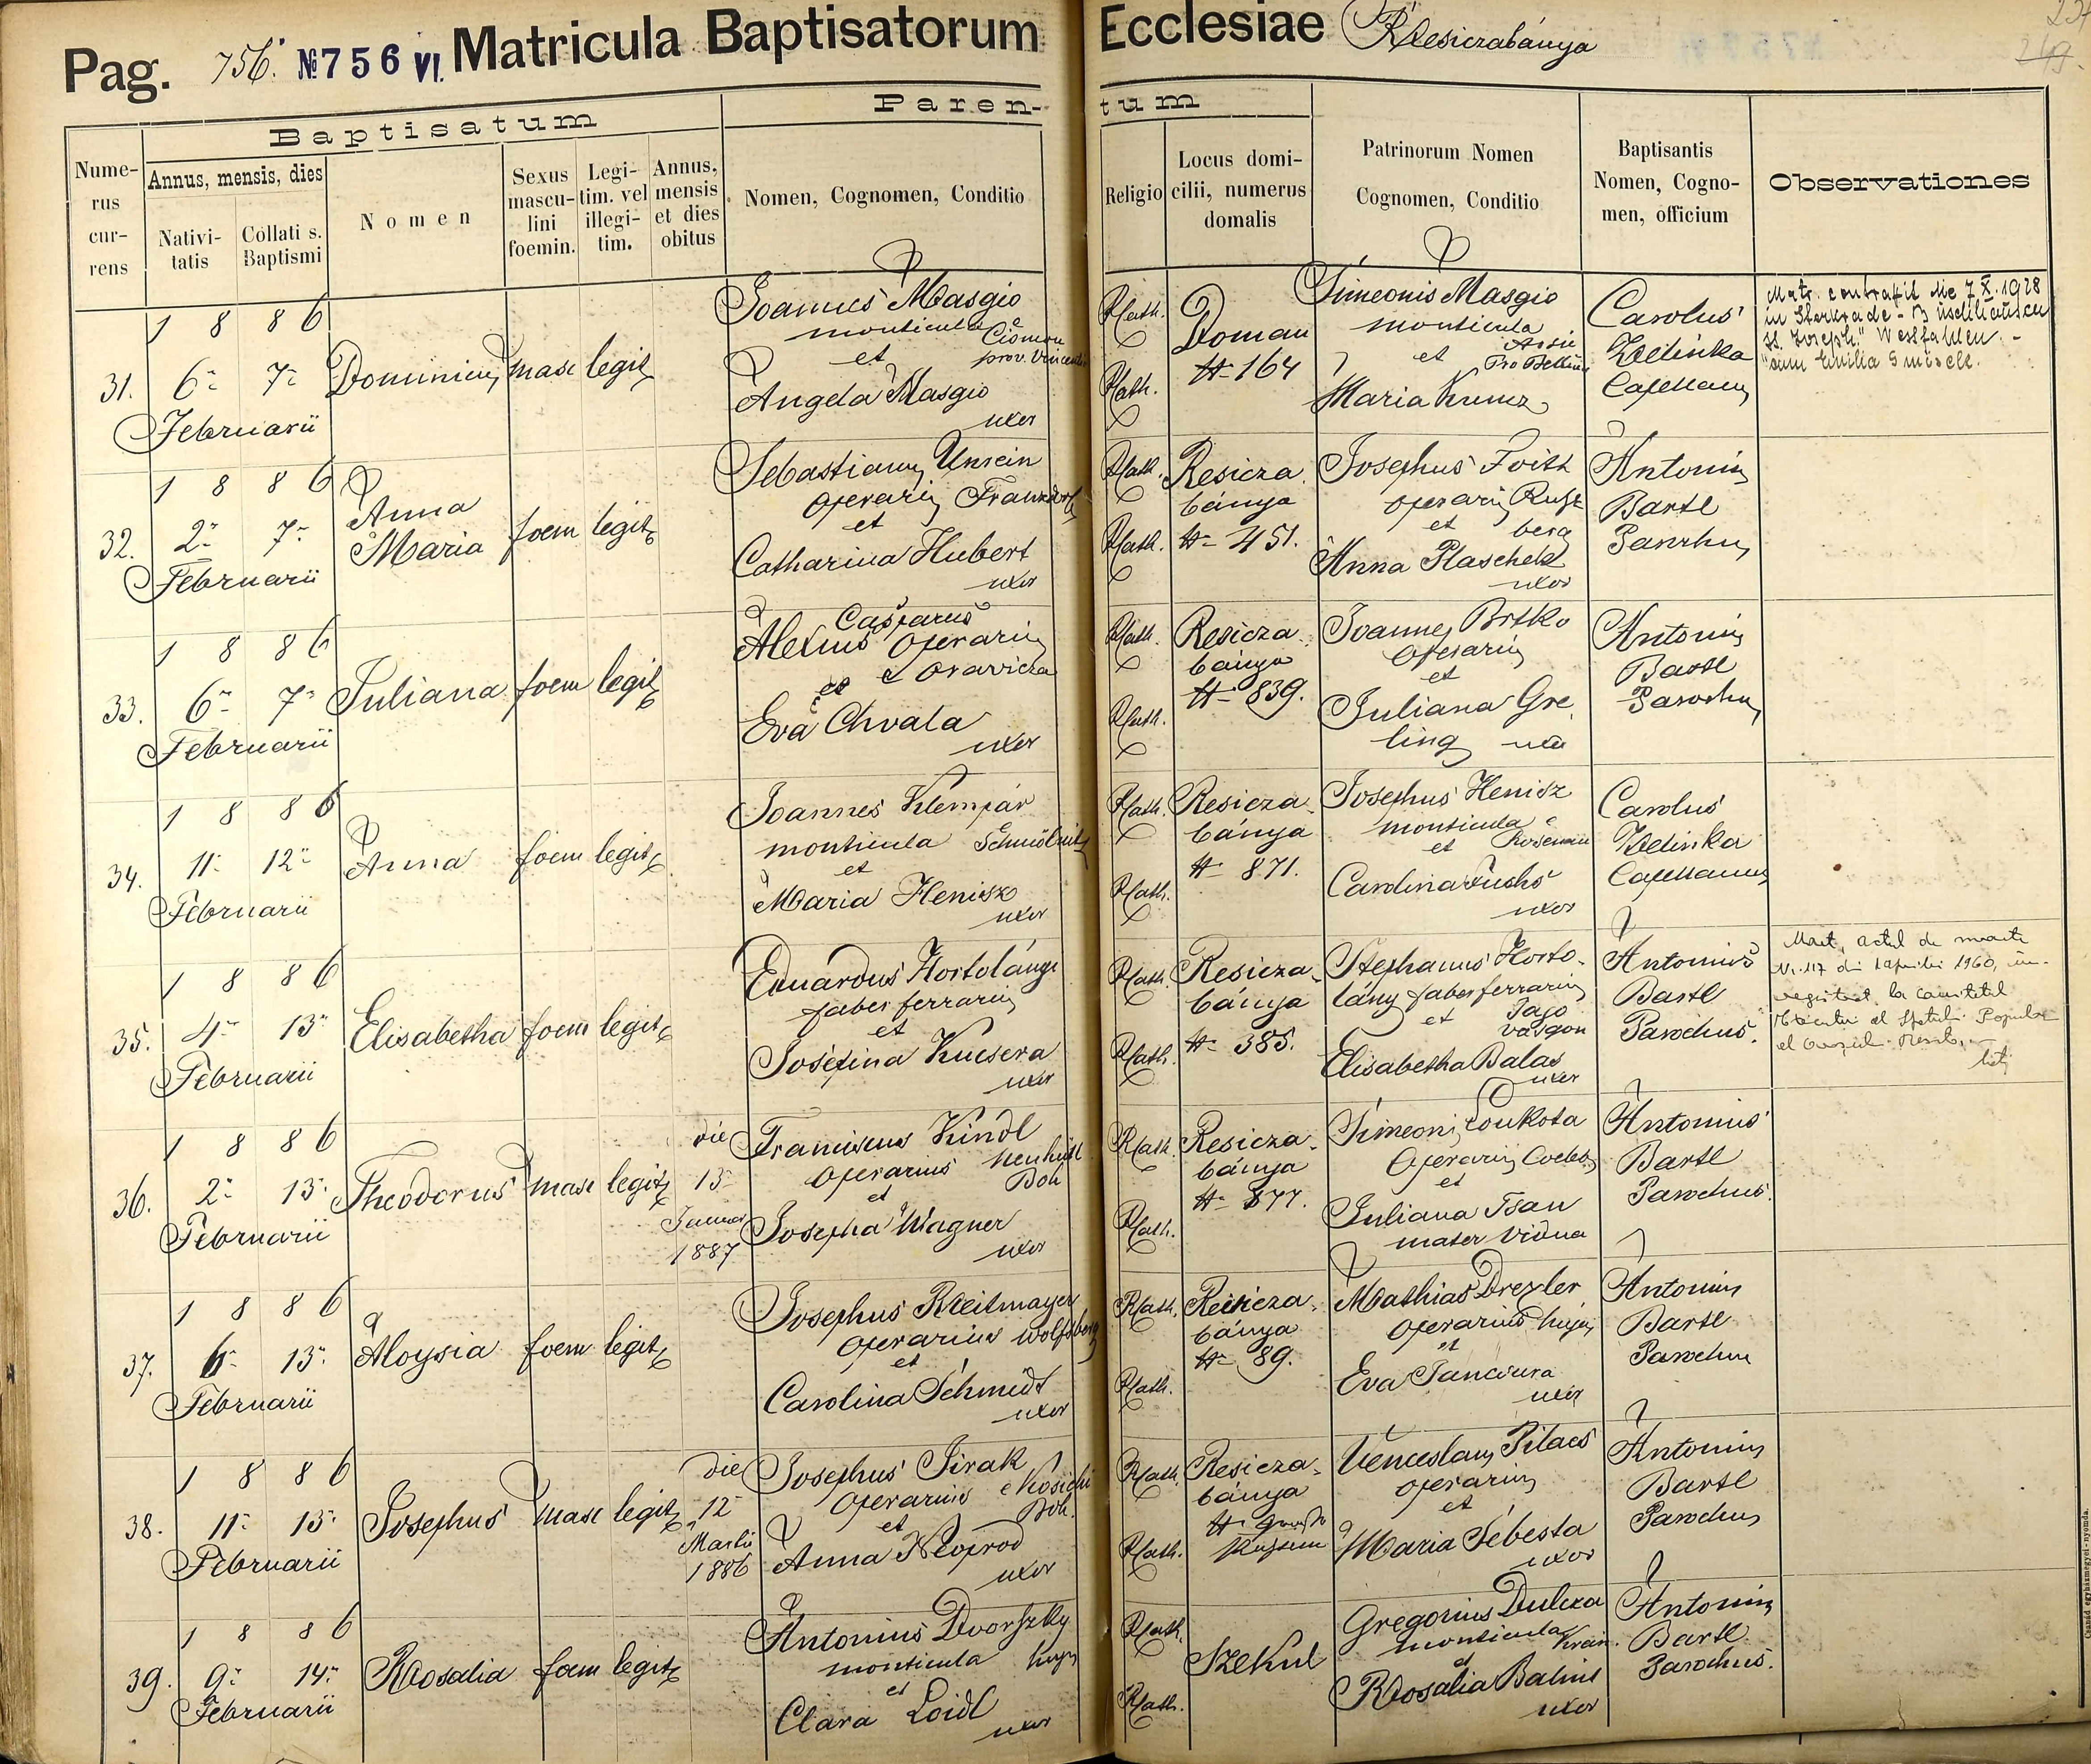 Pag. 756. № 756 VI. Matricula Baptisatorum Ecclesiae Resiczabánya
249.
Baptisatum
Parentum
Numerus currens
Annus, mensis, dies
Nativitatis
Collati s. Baptismi
Nomen
Sexus masculini foemin.
Legitim. vel illegitim.
Annus, mensis et dies obitus
Nomen, Cognomen, Conditio
Religio
Locus domicilii, numerus domalis
Patrinorum Nomen Cognomen, Conditio
Baptisantis Nomen, Cognomen, officium
Observationes
1886
31. 6- 7- Februarii
Dominicus masc legit
Joannes Masgio
monticula e Cismon
et prov. Vincentia
Angela Masgio
uxor
Rkath.
Rkath.
Doman
№ 164
Simeonis Masgio
monticula
et
Maria Kunz
Carolus
Zelinka
Capellanus
Matr. contraxit die 7 X. 1928
in Sterkrade
St. Joseph." Westfahlen -
cum Emilia
1886
32. 2- 7- Februarii
Anna
Maria
foem legit
Sebastianus Unrein
operarius Franzdorf
et
Catharina Hubert
uxor
Rkath.
Rkath.
Resicza
bánya
№ 451.
Josephus Foith
operarius Rusz
et berg
Anna Plaschek
uxor
Antonius
Bartl
Parochus
1886
33. 6- 7- Februarii
Juliana foem legit
Casparus
Alexius operarius
et e Oravicza
Eva Chvala
uxor
Rkath.
Rkath.
Resicza
bánya
№ 839.
Joannes Brtko
operarius
et
Juliana Gre
ling
Antonius
Bartl
Parochus
1886
34. 11- 12- Februarii
Anna foem legit
Joannes Klempár
monticula Schmölnitz
et
Maria Henisz
uxor
Rkath.
Rkath.
Resicza
bánya
№ 871.
Josephus Henisz
monticula e
et
Carolina Fuchs
uxor
Carolus
Zelinka
Capellanus
1886
35. 4- 13- Februarii
Elisabetha foem legit
Eduardus Hortolángi
faber ferrarius
et
Josefina Kucsera
uxor
Rkath.
Rkath.
Resicza
bánya
№ 385.
Stephanus Horto-
lány faber ferrarius
et Jago
vasgon
Elisabetha Balas
uxor
Antonius
Bartl
Parochus.
actul de moarte
Nr. 117 din 1 aprilie 1960, în-
registrat la comitetul
executiv al Sfatului Popular
al
1886
36. 2- 13- Februarii
Theodorus masc legit
die
13-
1887
Franciscus Kindl
operarius Neuhütl
et Boh
Josepha Wagner
uxor
Rkath.
Rkath.
Resicza
bánya
№ 877.
Simeonis Loukota
operarius Coelebs
et
Juliana Tsan
mater vidua
Antonius
Bartl
Parochus.
1886
37. 6- 13- Februarii
Aloysia foem legit
Josephus Reitmayer
operarius Wolfsberg
et
Carolina Schmidt
uxor
Rkath.
Rkath.
Resicza
bánya
№ 89.
Mathias Drexler
operarius hujus
et
Eva Tanciura
uxor
Antonius
Bartl
Parochus
1886
38. 11- 13- Februarii
Josephus masc legit
die
12-
Martii
1886
Josephus Jirak
operarius e
et Boh.
Anna Neoprod
uxor
Rkath.
Rkath.
Resicza
bánya
Venceslaus Pitacs
operarius
et
Maria Sebesta
uxor
Antonius
Bartl
Parochus
1886
39. 9- 14- Februarii
Rosalia foem legit
Antonius Dvorszky
monticula hujus
et
Clara Loidl
uxor
Rkath.
Rkath.
Szekul
Gregorius Dulcza
monticula Krain.
et
Rosalia Balint
uxor
Antonius
Bartl
Parochus.
Csanád egyházmegyei-nyomda.